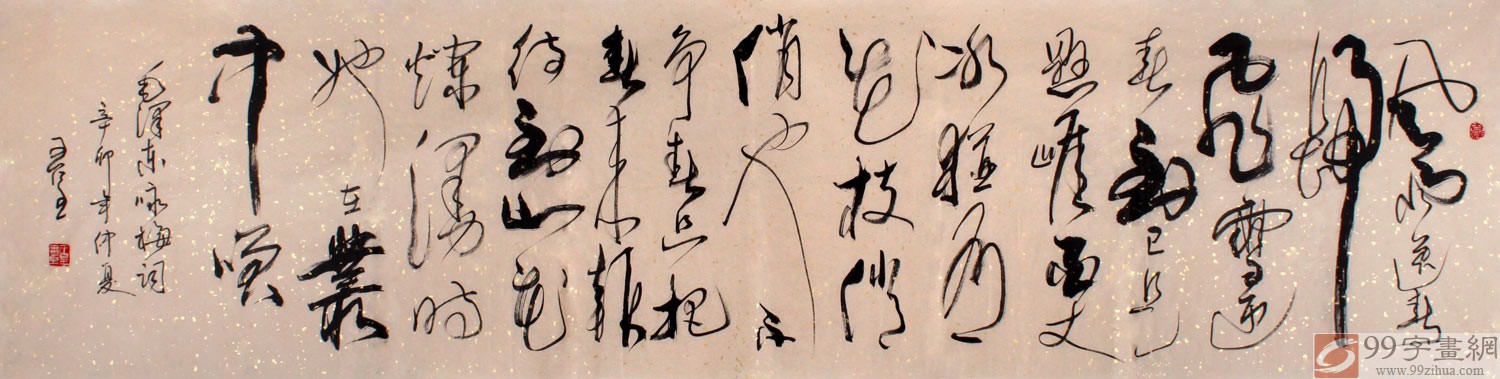 风雨送春
歸
飛雪迎
春到已是
懸崖百丈
冰猶有
花枝俏
俏也不
争春只把
春来報
待到山花
爛漫時
她在叢
中笑
毛澤东咏梅詞
辛卯年仲夏
99字畫網
www.99zihua.com